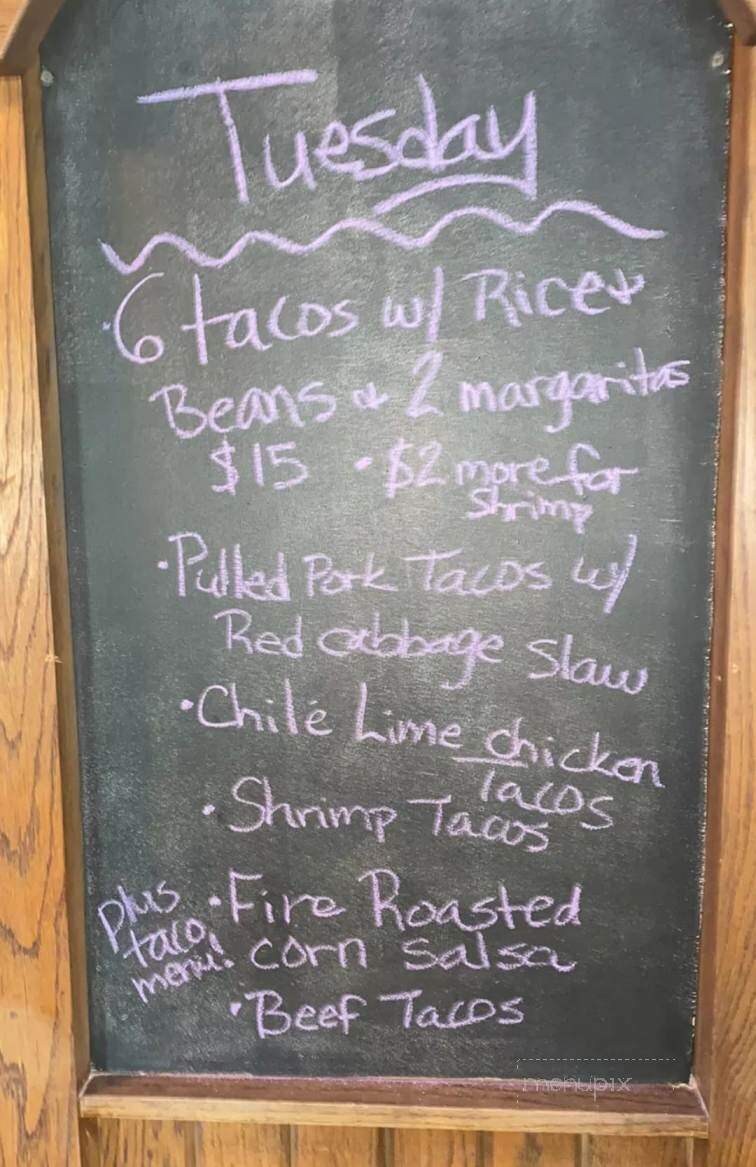 Tuesday
·6 tacos w/ Rice &
Beans & 2 margaritas
$15 · $2 more for
Shrimp
·Pulled Pork Tacos w/
Red cabbage slaw
·Chilé Lime chicken
Tacos
·Shrimp Tacos
·Fire Roasted
corn salsa
plus
taco
menu!
·Beef Tacos
menupix